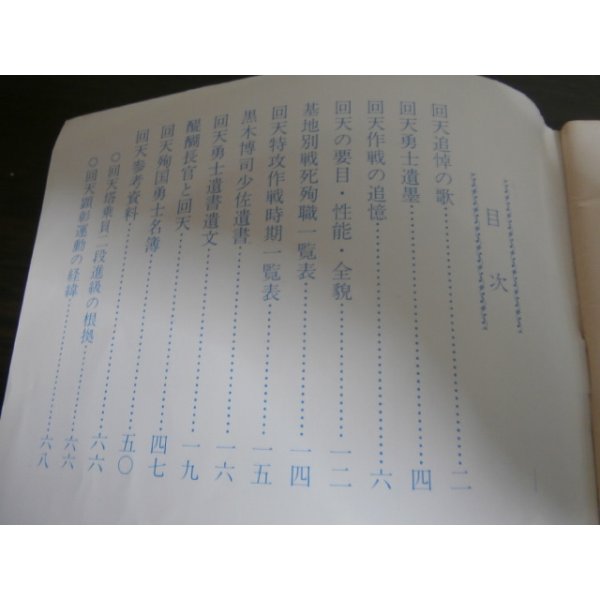 目次
回天追悼の歌……………二
回天勇士遺墨……………四
回天作戦の追憶……………六
回天の要目・性能・全貌……………一二
基地別戦死殉職一覧表……………一四
回天特攻作戦時期一覧表……………一五
黒木博司少佐遺書……………一六
回天勇士遺書遺文……………一九
醍醐長官と回天……………四七
回天殉国勇士名簿……………五〇
回天参考資料……………六六
○回天塔乗員二段進級の根拠……………六六
○回天顕彰運動の経緯……………六八